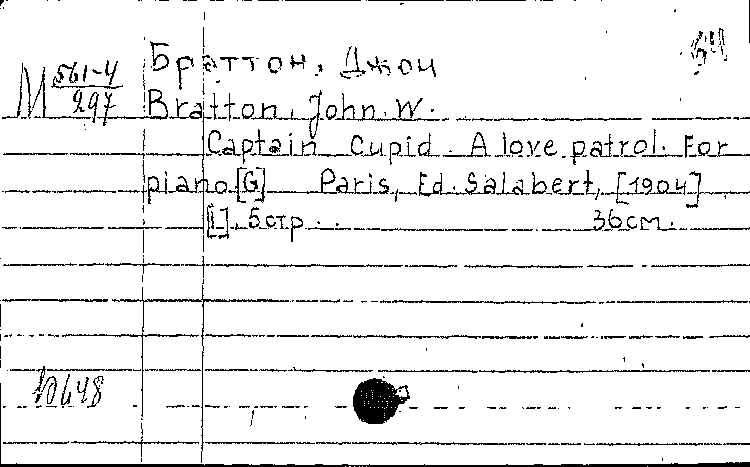 Браттон, Джон
М 561-4/297
Bratton, John. W.
Captain Cupid. A love patrol. For
piano.[G] Paris, Ed. Salabert, [1904]
[1], 5стр. 36см.